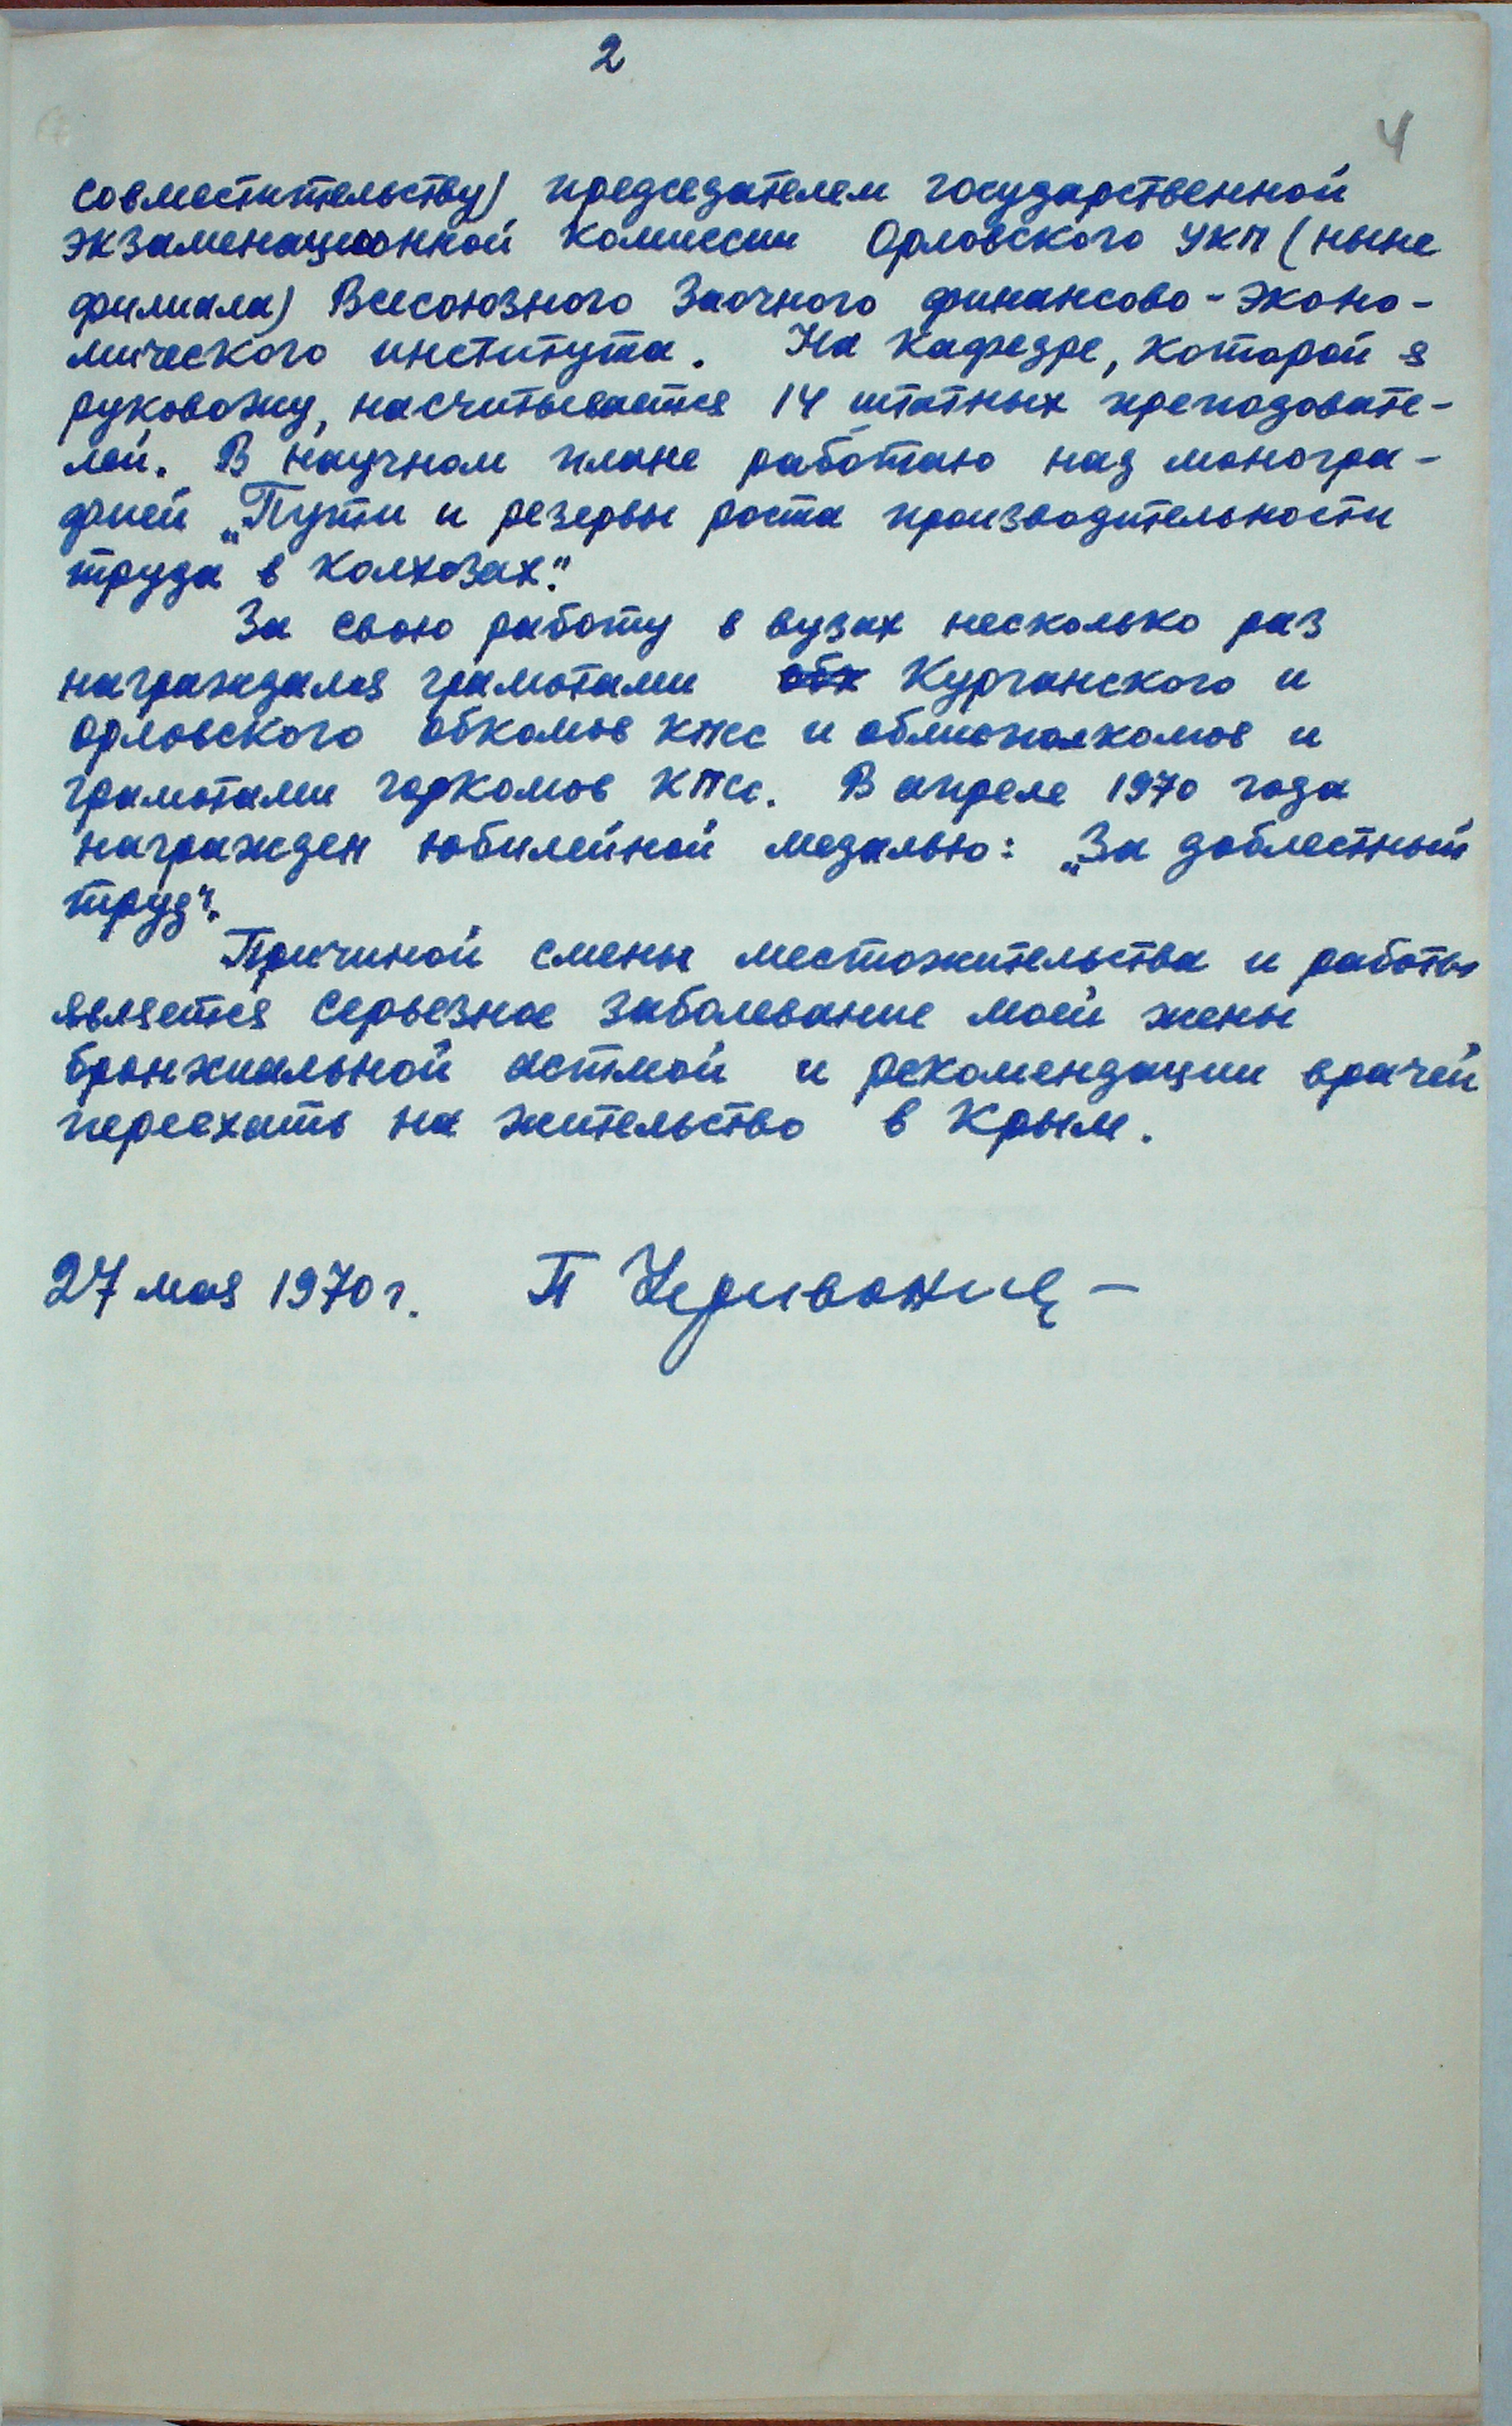 2
4
совместительству) председателем государственной
экзаменационной комиссии Орловского УКП (ныне
филиала) Всесоюзного Заочного финансово-эконо-
мического института. На кафедре, которой я
руковожу, насчитывается 14 штатных преподовате-
лей. В научном плане работаю над моногра-
фией „Пути и резервы роста производительности
труда в колхозах".
За свою работу в вузах несколько раз
награждался грамотами обк Курганского и
Орловского обкомов КПСС и облисполкомов и
грамотами горкомов КПСС. В апреле 1970 года
награжден юбилейной медалью: „За доблестный
труд".
Причиной смены местожительства и работы
является серьезное заболевание моей жены
бронхиальной астмой и рекомендации врачей
переехать на жительство в Крым.
27 мая 1970 г. П